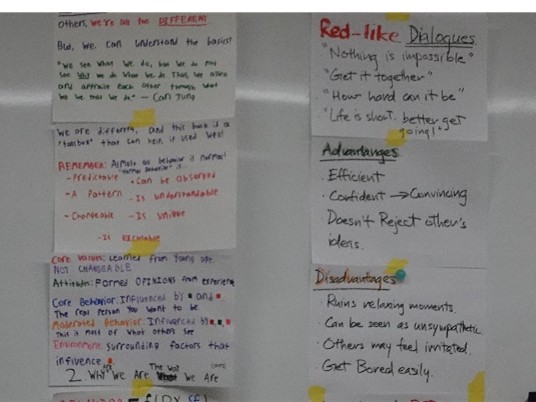 others, we're all too DIFFERENT
But, we can understand the basics!
"We see what we do, but we do not
see why we do what we do. Thus, we
and appraise each other through what
we see we do" - Carl Jung
We are different, and this book is a
"toolbox" that can help if used well!
REMEMBER: as behavior is normal!
- Predictable
- Can be observed
- A Pattern
- Is understandable
- Changeable
- Is Unique
- Is Excitable
Core Values: Learned from young age.
NOT CHANGEABLE
Attitude: Formed OPINIONS from experience
Core Behavior: Influenced by and
The real person you want to be
Moderated Behavior: Influenced by
This is most of what others see
Environment: Surrounding factors that
influence
2. Why We Are The Way We Are
Red-like Dialogues
"Nothing is impossible"
"Get it together"
"How hard can it be"
"Life is short. better get
going!"
Advantages
· Efficient
· Confident → Convincing
Doesn't Reject other's
ideas.
Disadvantages
· Ruins relaxing moments.
· Can be seen as unsympathetic
· Others may feel irritated.
· Get Bored easily.